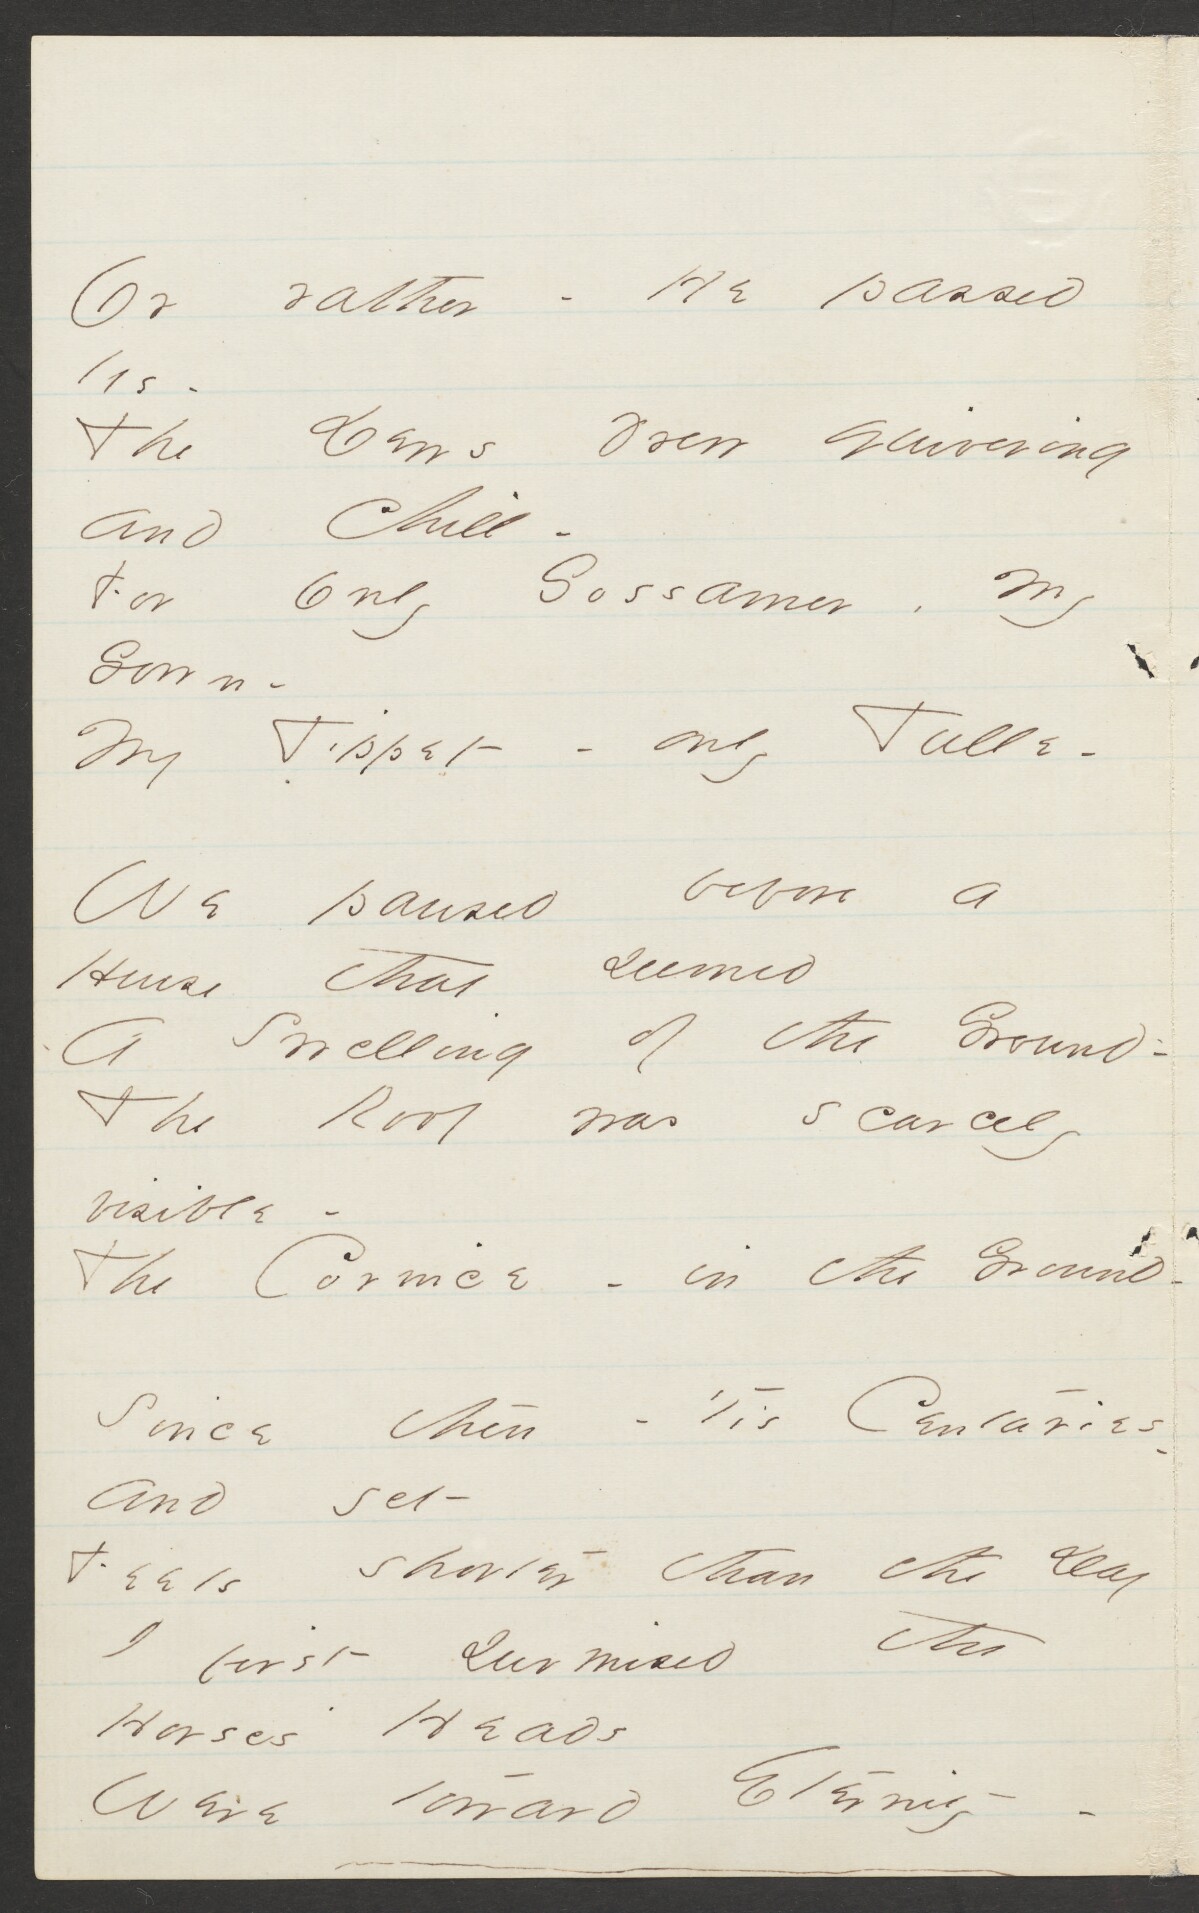 Or rather - He passed
Us -
The Dews drew quivering
and Chill -
For Only Gossamer, my
Gown -
My Tippet - only Tulle -
We paused before a
House that seemed
A Swelling of the Ground -
The Roof was scarcely
visible -
The Cornice - in the Ground -
Since then - 'tis Centuries -
and yet
Feels shorter than the Day
I first surmised the
Horses' Heads
Were toward Eternity -